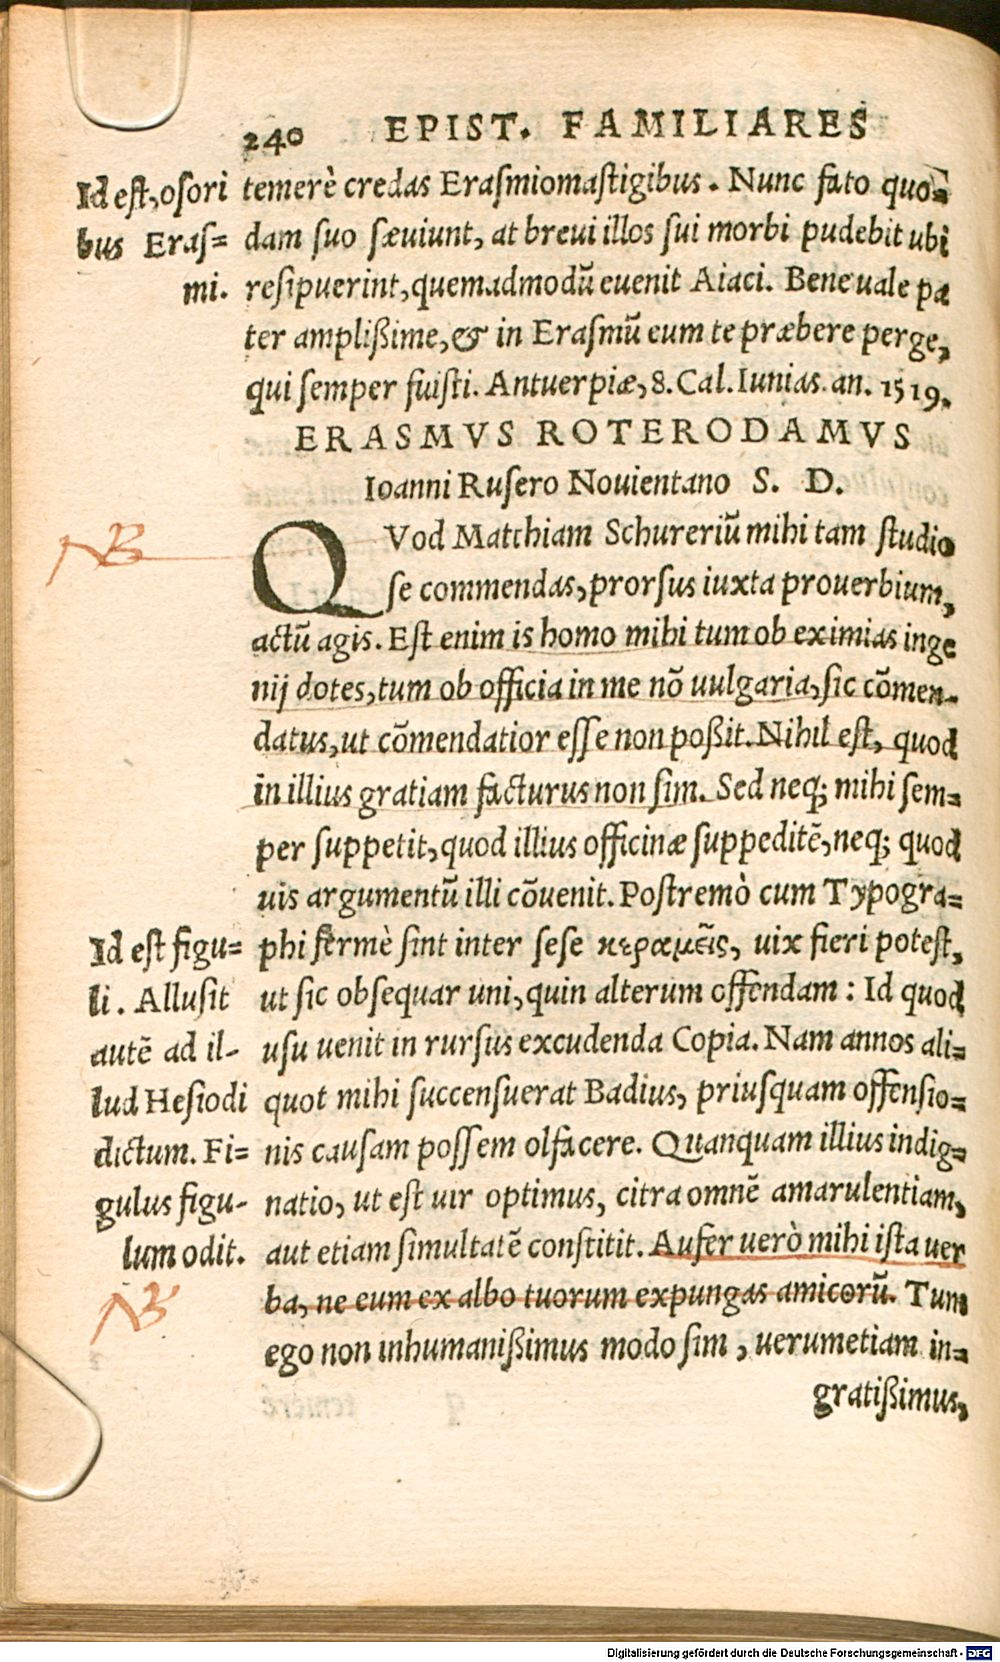 240 EPIST. FAMILIARES
temerè credas Erasmiomastigibus. Nunc fato quo=
dam suo sæviunt, at brevi illos sui morbi pudebit ubi
resipuerint, quemadmodū evenit Aiaci. Bene vale pa
ter amplißime, & in Erasmū eum te præbere perge,
qui semper fuisti. Antuerpiæ, 8. Cal. Iunias. an. 1519.
Id est, osori
bus Eras=
mi.
ERASMVS ROTERODAMVS
Ioanni Rusero Novientano S. D.
NB
QVod Matthiam Schureriū mihi tam studio
se commendas, prorsus iuxta proverbium,
actū agis. Est enim is homo mihi tum ob eximias inge
nij dotes, tum ob officia in me nō vulgaria, sic cōmen-
datus, ut cōmendatior esse non poßit. Nihil est, quod
in illius gratiam facturus non sim. Sed neq; mihi sem=
per suppetit, quod illius officinæ suppeditē, neq; quod
vis argumentū illi cōvenit. Postremò cum Typogra=
phi fermè sint inter sese κεραμεῖς, vix fieri potest,
ut sic obsequar uni, quin alterum offendam: Id quod
usu venit in rursus excudenda Copia. Nam annos ali=
quot mihi succensuerat Badius, priusquam offensio=
nis causam possem olfacere. Quanquam illius indig=
natio, ut est vir optimus, citra omnē amarulentiam,
aut etiam simultatē constitit. Aufer verò mihi ista ver
ba, ne eum ex albo tuorum expungas amicorū. Tum
ego non inhumanißimus modo sim, verumetiam in=
gratißimus,
Id est figu=
li. Allusit
autē ad il-
lud Hesiodi
dictum. Fi=
gulus figu-
lum odit.
NB
Digitalisierung gefördert durch die Deutsche Forschungsgemeinschaft - DFG